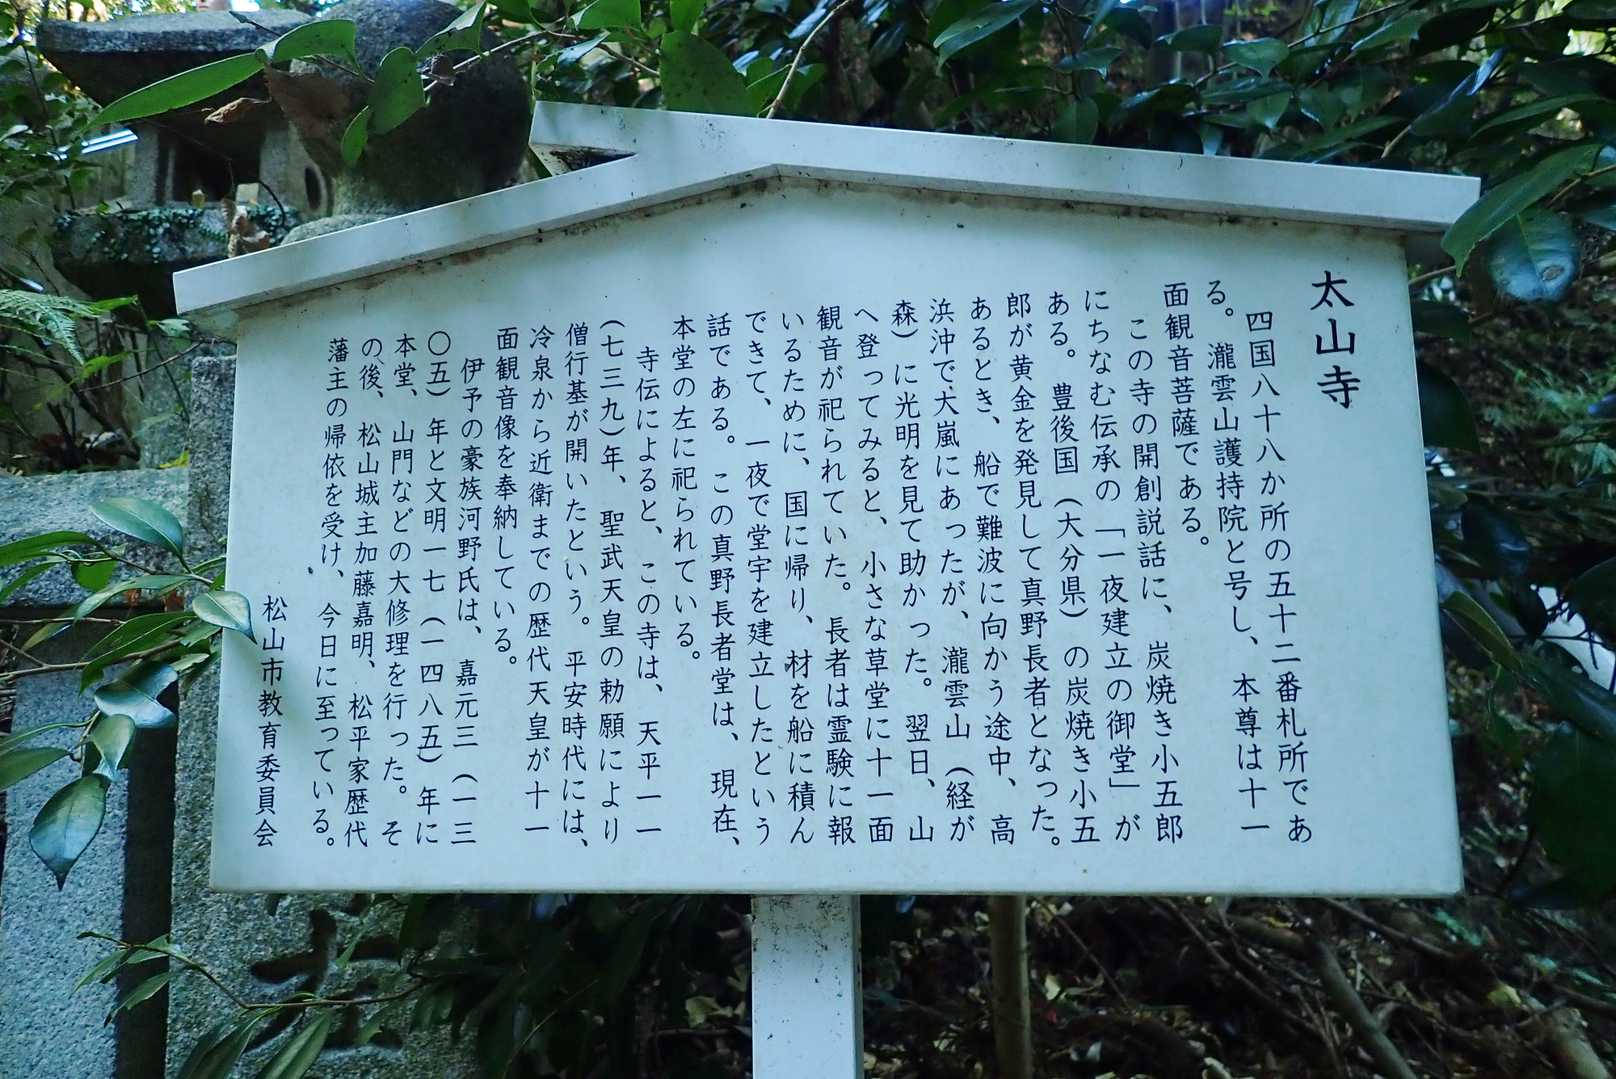 太山寺
四国八十八か所の五十二番札所であ
る。瀧雲山護持院と号し、本尊は十一
面観音菩薩である。
この寺の開創説話に、炭焼き小五郎
にちなむ伝承の「一夜建立の御堂」が
ある。豊後国（大分県）の炭焼き小五
郎が黄金を発見して真野長者となった。
あるとき、船で難波に向かう途中、高
浜沖で大嵐にあったが、瀧雲山（経が
森）に光明を見て助かった。翌日、山
へ登ってみると、小さな草堂に十一面
観音が祀られていた。長者は霊験に報
いるために、国に帰り、材を船に積ん
できて、一夜で堂宇を建立したという
話である。この真野長者堂は、現在、
本堂の左に祀られている。
寺伝によると、この寺は、天平一一
（七三九）年、聖武天皇の勅願により
僧行基が開いたという。平安時代には、
冷泉から近衛までの歴代天皇が十一
面観音像を奉納している。
伊予の豪族河野氏は、嘉元三（一三
〇五）年と文明一七（一四八五）年に
本堂、山門などの大修理を行った。そ
の後、松山城主加藤嘉明、松平家歴代
藩主の帰依を受け、今日に至っている。
松山市教育委員会